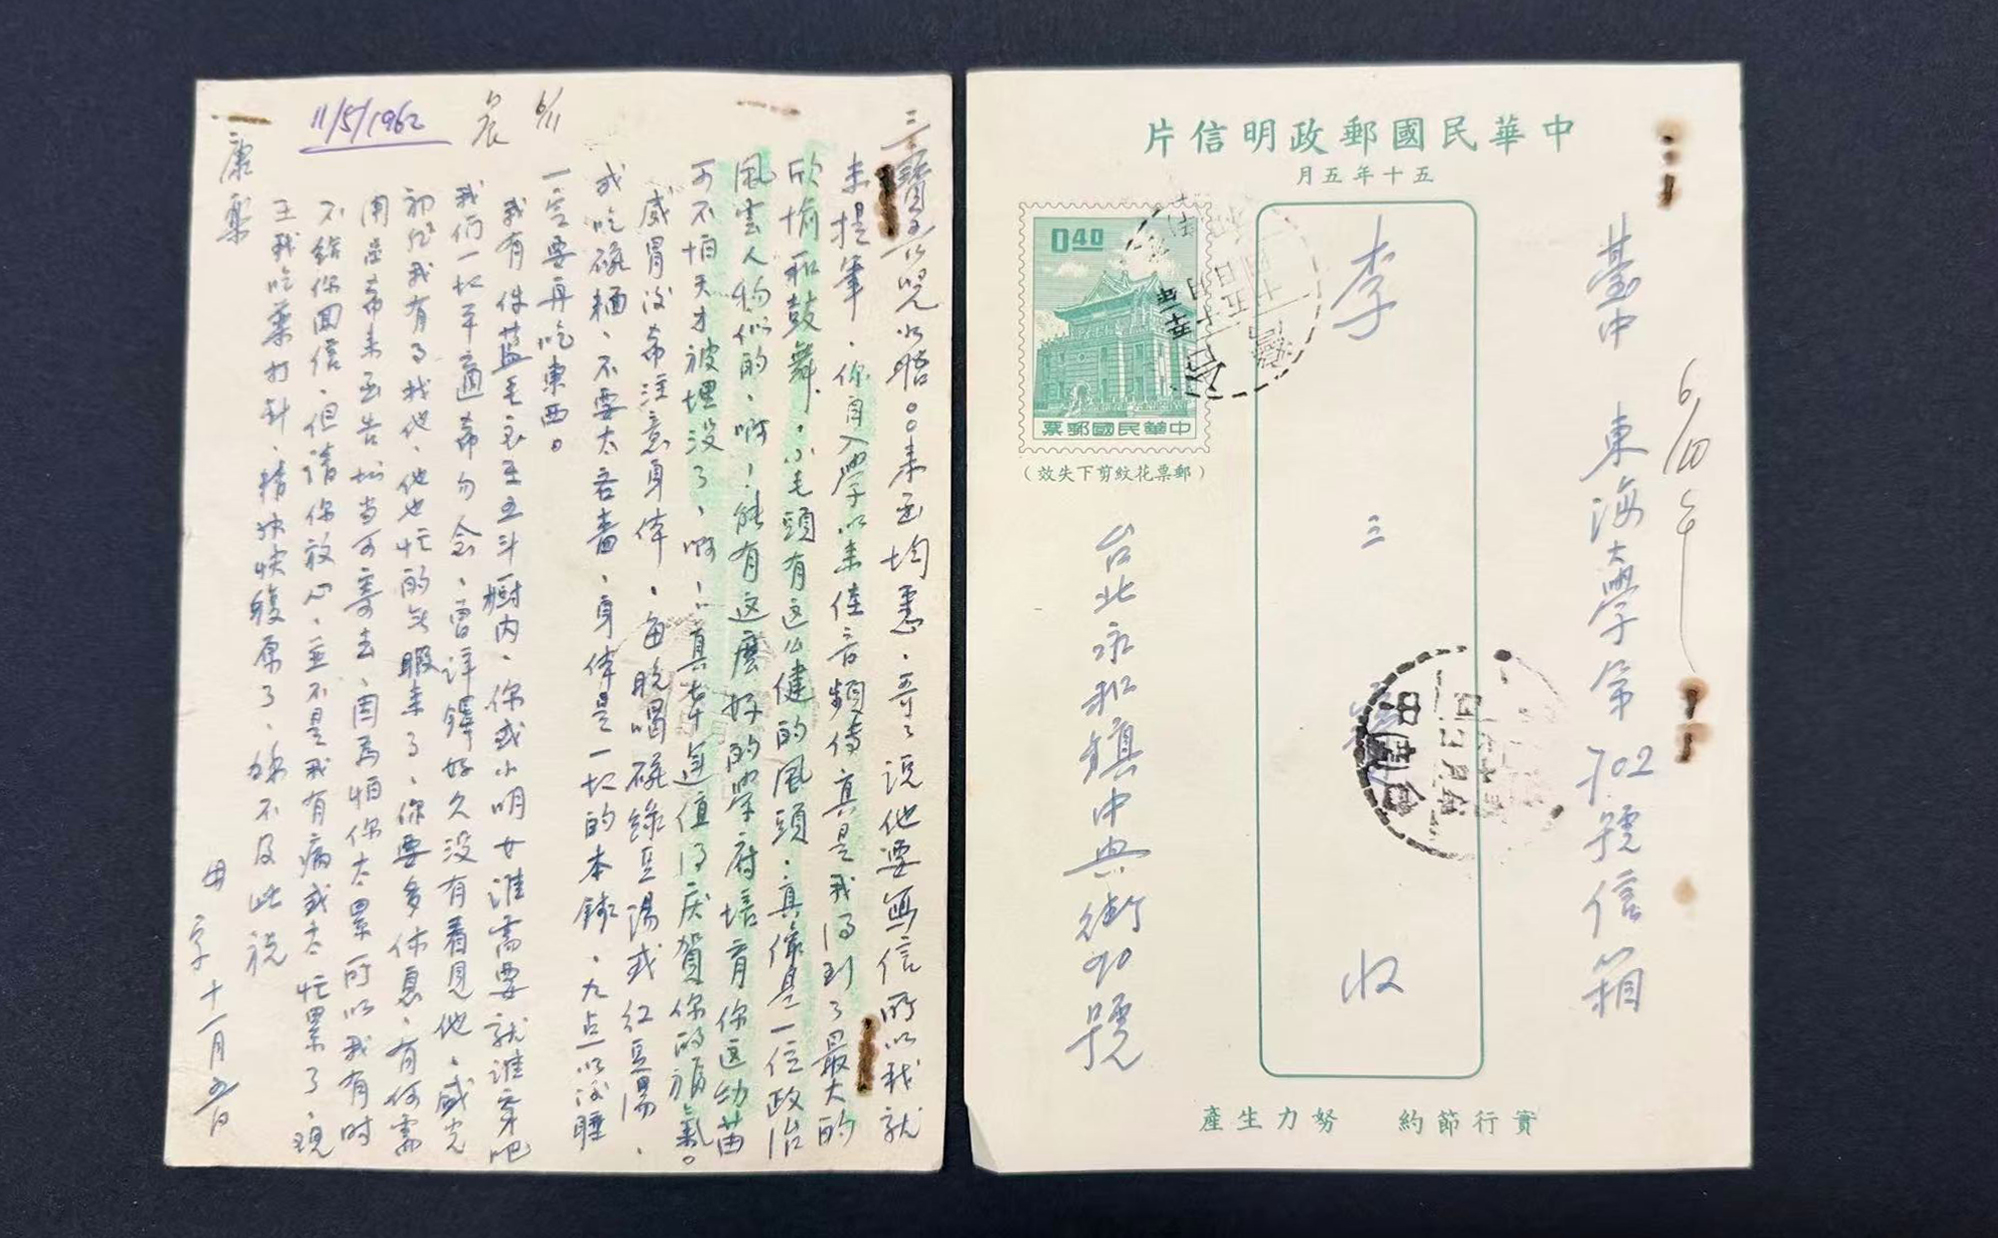 11/5/1962
三寶吾兒如晤。。來函均悉、哥哥說他要無信所以我就
未提筆、你自入學以來佳音頻傳真是我得到了最大的
欣愉和鼓舞、小毛頭有這么健的風頭、真像是一位政治
風雲人物似的、啊！能有这麼好的學府培育你这幼苗
可不怕天才被埋没了、啊、真 值得庆賀你的福氣。
感冒没 希注意身体、每晚喝碗綠豆湯或紅豆湯、
或吃碗麵、不要太吝嗇、身体是一切的本錢、九点以後睡
一定要再吃東西。
我有件蓝毛衣在五斗橱内、你或小明女誰需要就誰穿吧
我们一切平適希勿念、曾譯鐸好久没有看見他、感覚
初 我有了我他、他也忙的無暇来了、你要多休息、有何需
用品希来函告 当可寄去、因為怕你太累所以我有時
不給你回信、但請你放心、並不是我有病或太忙累了、現
在我吃藥打針、精神快復原了、餘不及此 祝
康樂
母字十一月五日
中華民國郵政明信片
五十年五月
0.40
中華民國郵票
（郵票花紋剪下失效）
臺中 東海大學第702號信箱
李 三 收
台北永和鎮中興街90號
實行節約 努力生產